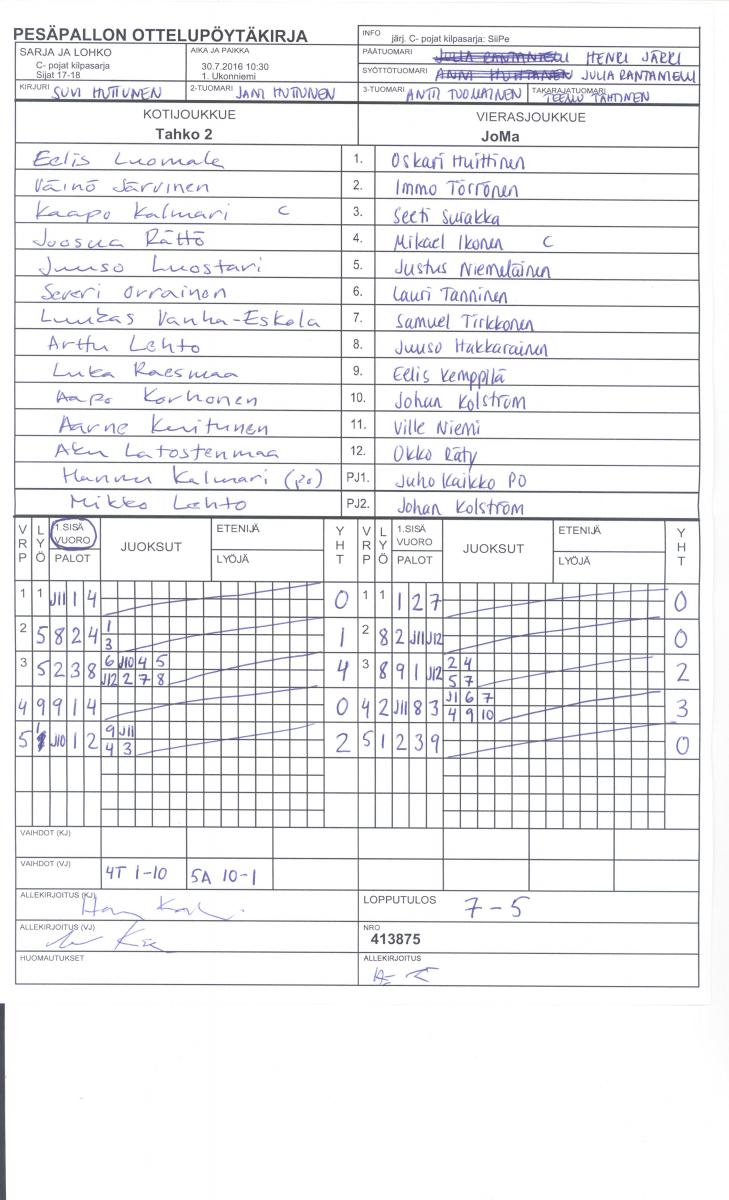 PESÄPALLON OTTELUPÖYTÄKIRJA
INFO järj. C- pojat kilpasarja: SiiPe
SARJA JA LOHKO
C- pojat kilpasarja
Sijat 17-18
AIKA JA PAIKKA
30.7.2016 10:30
1. Ukonniemi
PÄÄTUOMARI JULIA RANTANIEMI HENRI JÄRKI
SYÖTTÖTUOMARI ANNI HUHTANEN JULIA RANTANIEMI
KIRJURI SUVI HUTTUNEN 2-TUOMARI JANI HUTTUNEN 3-TUOMARI ANTTI TUOMAINEN TAKARAJATUOMARI TEEMU TÄHTINEN
KOTIJOUKKUE VIERASJOUKKUE
Tahko 2 JoMa
Eelis Luomala 1. Oskari Huittinen
Väinö Järvinen 2. Immo Törrönen
Kaapo Kalmari C 3. Seeti Surakka
Joosua Rättö 4. Mikael Ikonen C
Juuso Luostari 5. Justus Niemeläinen
Severi Orrainen 6. Lauri Tanninen
Luukas Vanha-Eskola 7. Samuel Tirkkonen
Arttu Lehto 8. Juuso Hakkarainen
Luka Raesmaa 9. Eelis Kemppilä
Aapo Korhonen 10. Johan Kolström
Aarne Kuitunen 11. Ville Niemi
Aku Latostenmaa 12. Okko Räty
Hannu Kalmari (po) PJ1. Juho Kaikko PO
Mikko Lehto PJ2. Johan Kolström
VRP LYÖ 1.SISÄ VUORO PALOT JUOKSUT ETENIJÄ LYÖJÄ YHT VRP LYÖ 1.SISÄ VUORO PALOT JUOKSUT ETENIJÄ LYÖJÄ YHT
1 1 J11 1 4 0 1 1 1 2 7 0
2 5 8 2 4 1 1 2 8 2 J11 J12 0
3
3 5 2 3 8 6 J10 4 5 4 3 8 9 1 J12 2 4 2
J12 2 7 8 5 7
4 9 9 1 4 0 4 2 J11 8 3 J1 6 7 3
4 9 10
5 1 J10 1 2 9 J11 2 5 1 2 3 9 0
4 3
VAIHDOT (KJ)
VAIHDOT (VJ) 4T 1-10 5A 10-1
ALLEKIRJOITUS (KJ) LOPPUTULOS 7-5
ALLEKIRJOITUS (VJ) NRO
413875
HUOMAUTUKSET ALLEKIRJOITUS